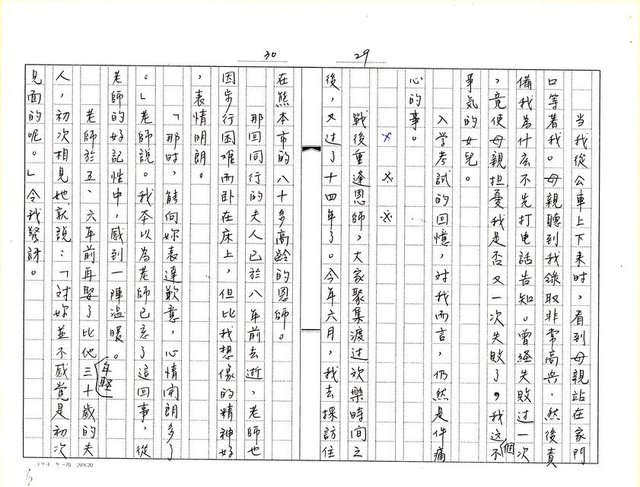 29
當我從公車上下來時,看到母親站在家門
口等著我。母親聽到我錄取非常高興,然後責
備我為什么不先打電話告知。曾經失敗過一次
,竟使母親担憂我是否又一次失敗了,我這個不
爭氣的女兒。
入学考試的回憶,对我而言,仍然是件痛
心的事。
× × ×
戰後重逢恩師,大家聚集渡过欢樂時间之
後,又过了十四年了。今年六月,我去探訪住
30
在熊本市的八十多高齡的恩師。
那回同行的夫人已於八年前去逝,老師也
因步行困难而卧在床上,但比我想像的精神好
,表情明朗。
「那时,能向妳表達歉意,心情開朗多了
。」老師說。我本以為老師已忘了這回事,從
老師的好記性中,感到一陣温暖。
老師於五、六年前再娶了比他年輕三十歲的夫
人,初次相見她就說:「对妳並不感覺是初次
見面的呢。」令我驚訝。